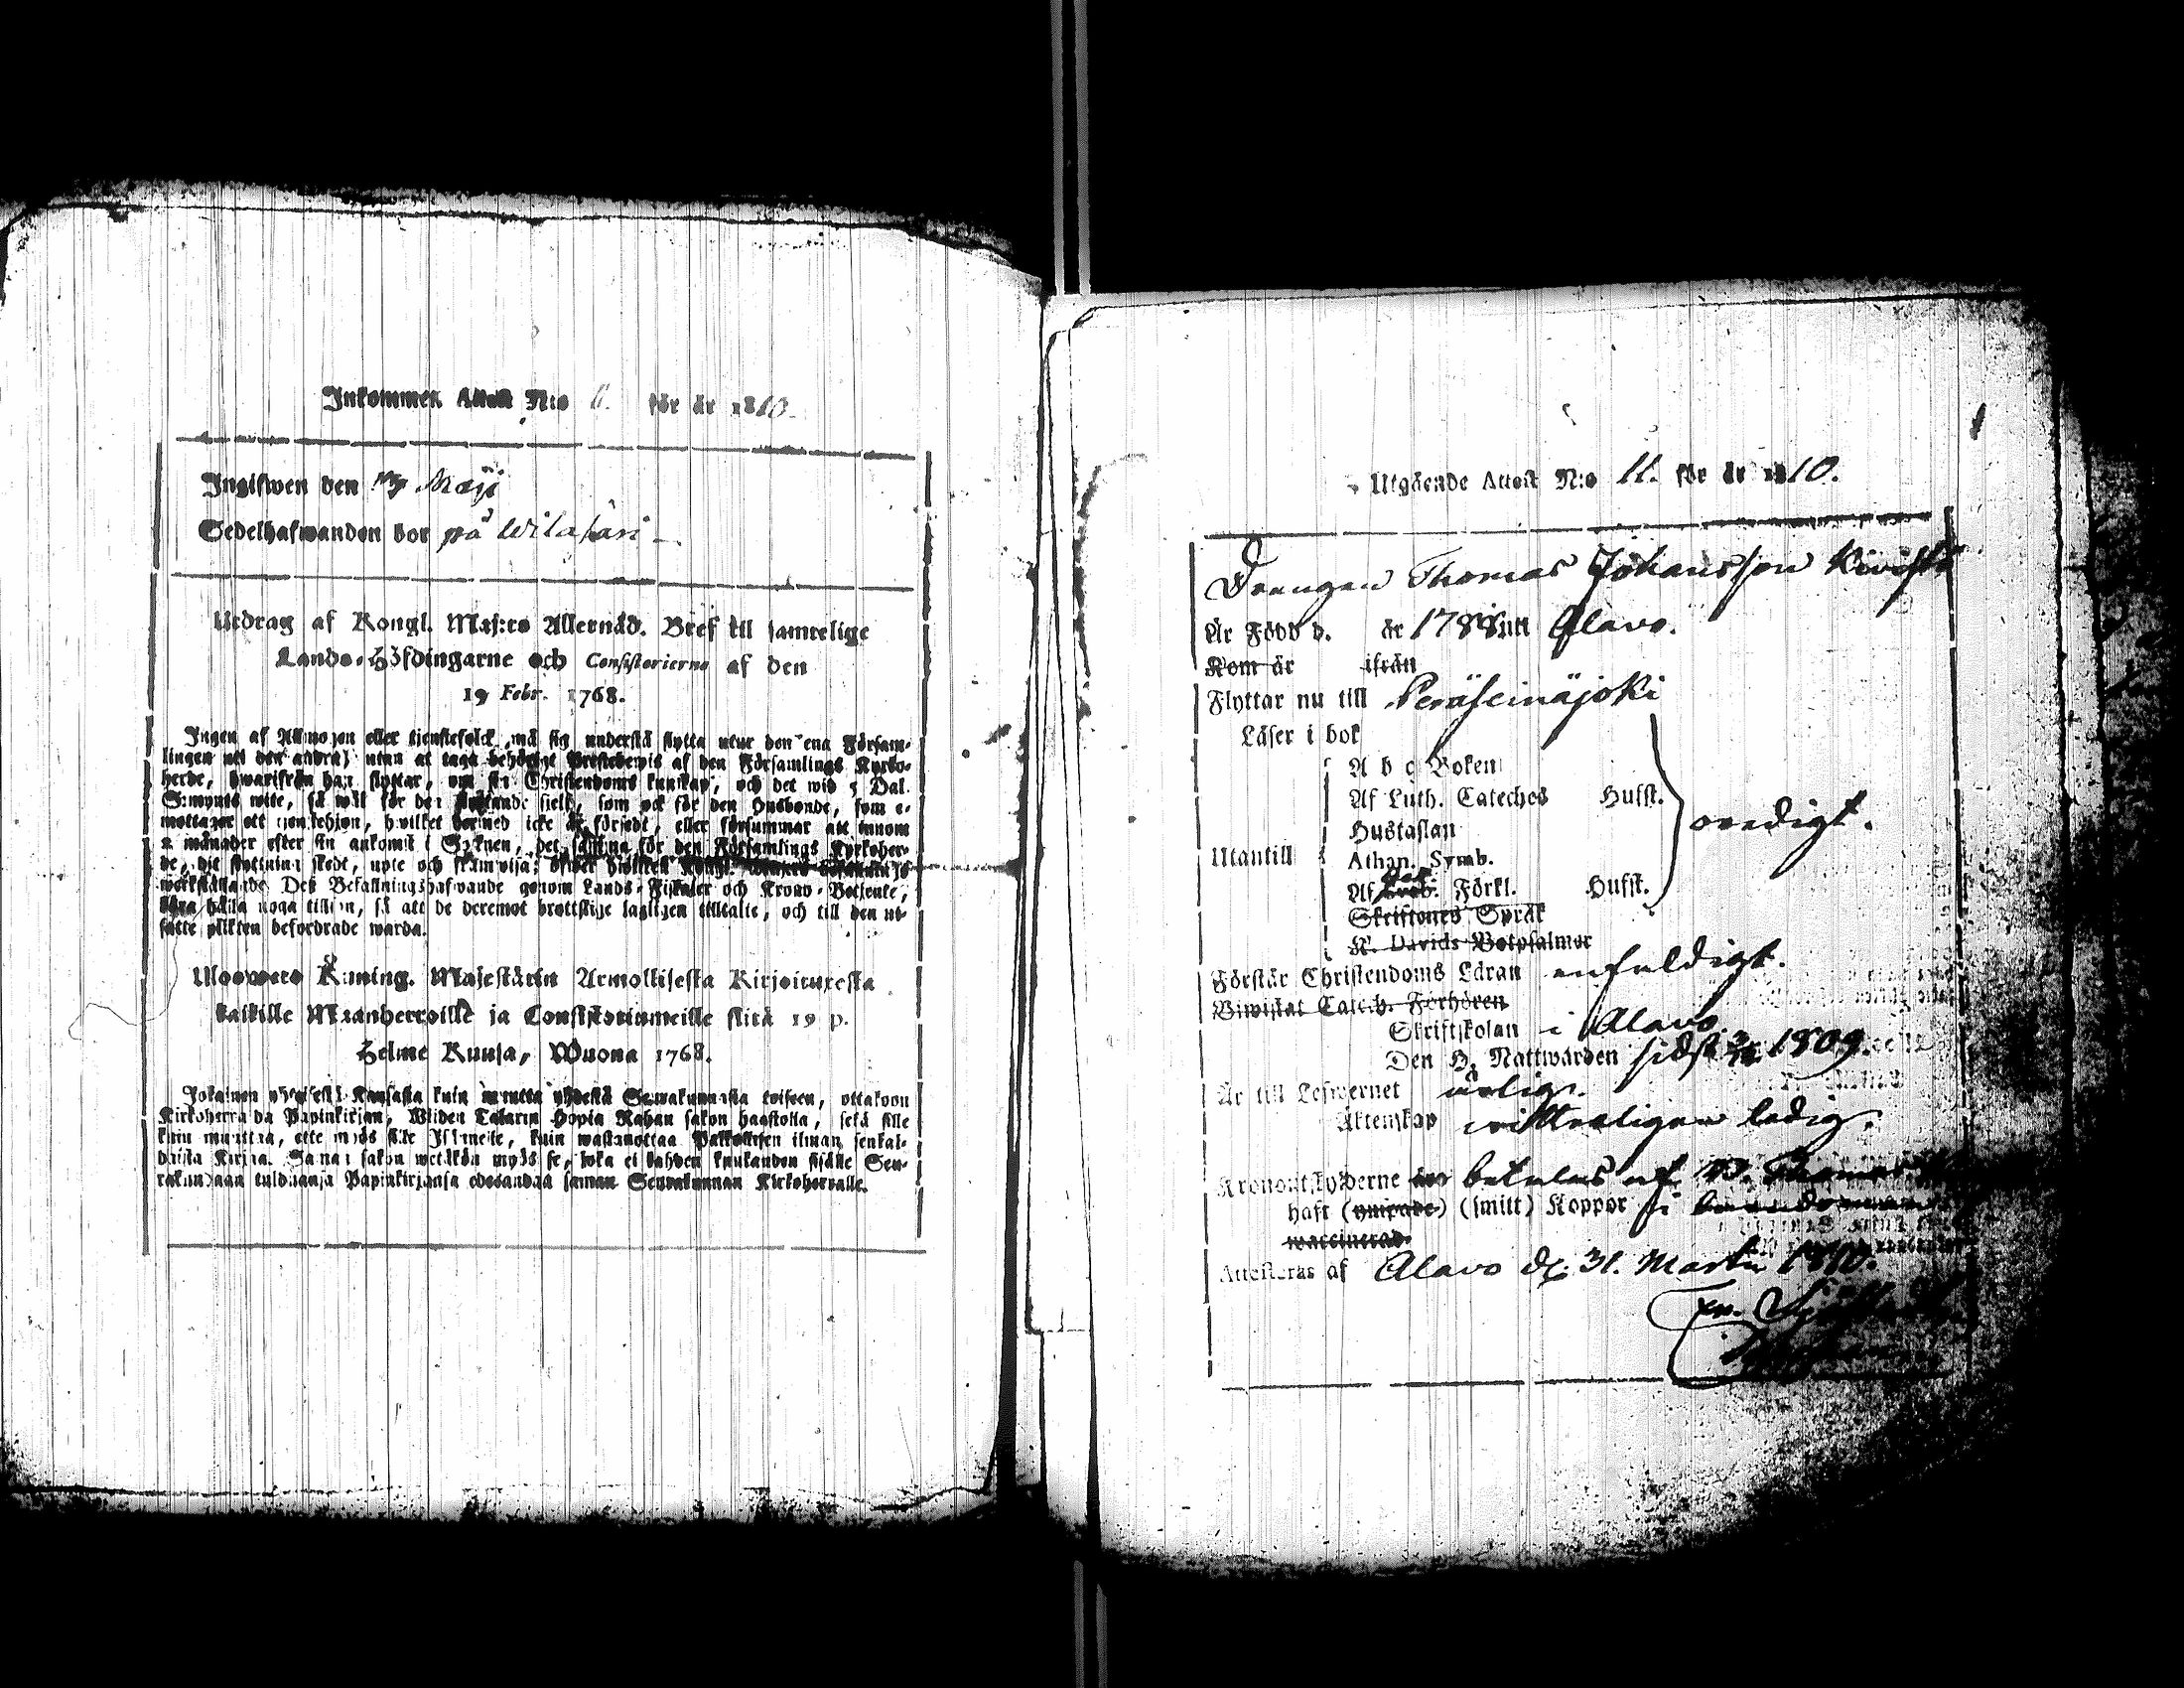 Inkommen Attest N:o 6. för år 1810.
Ingifwen den Maji
Sedelhafwanden bor på Wilasari
Utdrag af Kongl. Maj:ts Allernåd. Bref til samtelige
Lands-Höfdingarne och Consistorierne af den
19 Febr. 1768.
Ingen af Allmogen eller tjenstefolck må sig understå flytta utur den ena Försam-
lingen uti den andra, utan at taga behörigt Prestebewis af den Församlings Kyrko-
herde, hwarifrån han flyttar, om sin Christendoms kunskap, och det wid 5 Dal.
S:mynts wite, så wäl för den flyttande sjelf, som ock för den Husbonde, som e-
mottager ett tjenstehjon, hwilket dermed icke är försedt, eller försummar att innom
2 månader efter sin ankomst i Socknen, det samma för den Församlings Kyrkoher-
de, dit flyttningen skedt, upte och framwisa; öfwer hwilket
werkställande Dess Befallningshafwande genom Lands-Fiskaler och Krono-Betjente,
böra hålla noga tillsyn, så att de deremot brottslige lagligen tilltalte, och till den ut-
satte plikten befordrade warda.
Uloswero Kuning. Majestätin Armollisesta Kirjoituxesta
kaikille Maanherroille ja Consistoriumeille siitä 19 p.
Helme Kuusa, Wuona 1768.
Jokainen yhteisestä Kansasta kuin muutta yhdestä Seurakunnasta toiseen, ottakoon
Kirkoherralda Papinkirjan, Wiiden Talarin Hopia Rahan sakon haastolla, sekä sille
kuin muuttaa, ette myös sille Isännelle, kuin wastanottaa Palkollisen ilman senkal-
daista Kirjaa. Saman sakon wetäkön myös se, joka ei kahden kuukauden sisälle Seu-
rakundaan tulduansa Papinkirjansa edesandaa saman Seurakunnan Kirkoherralle.
Utgående Attest N:o 11. för år 1810.
Drengen Thomas Johansson Kivistö
Är Född d. år 1788 uti Alavo.
Kom år ifrån
Flyttar nu till Peräseinäjoki
Läser i bok
A b c Boken
Af Luth. Cateches Hufst.
Hustaflan
Utantill Athan. Symb. oredigt.
Af Förkl. Hufst.
Skriftenes Språk
K. Davids Botpsalmer
Förstår Christendoms Läran enfaldigt.
Biwistat Catech. Förhören
Skriftskolan i Alavo
Den H. Nattwarden sidst 1809.
Är till Lefwernet ärlig.
Äktenskap witterligen ledig.
Kronoutskylderne betalas af
haft (smitt) Koppor
waccinerad.
Attesteras af Alavo d. 31. Martii 1810.